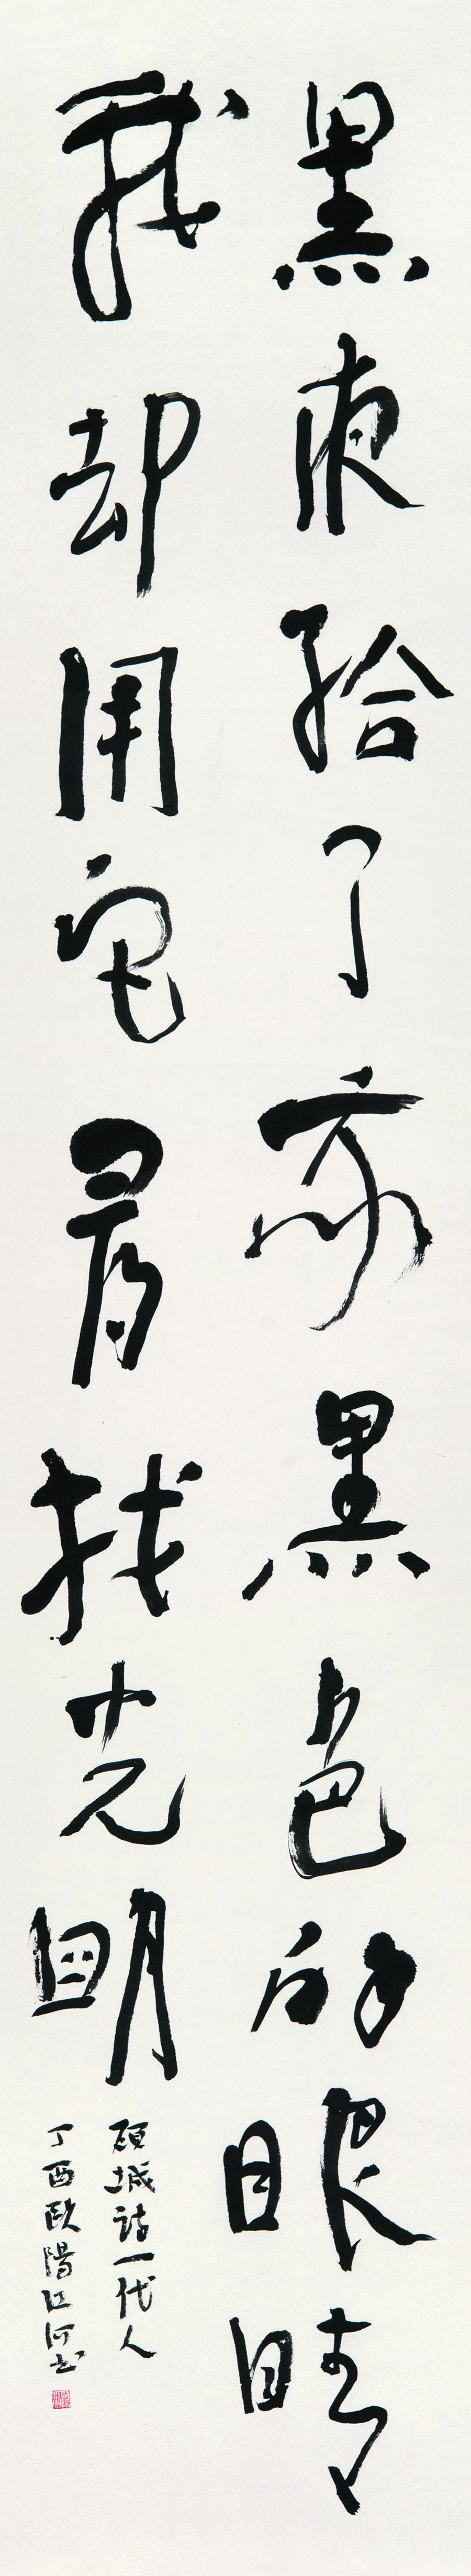 黑夜给了我黑色的眼睛
我却用它尋找光明
顾城詩一代人
丁酉歐陽江河书